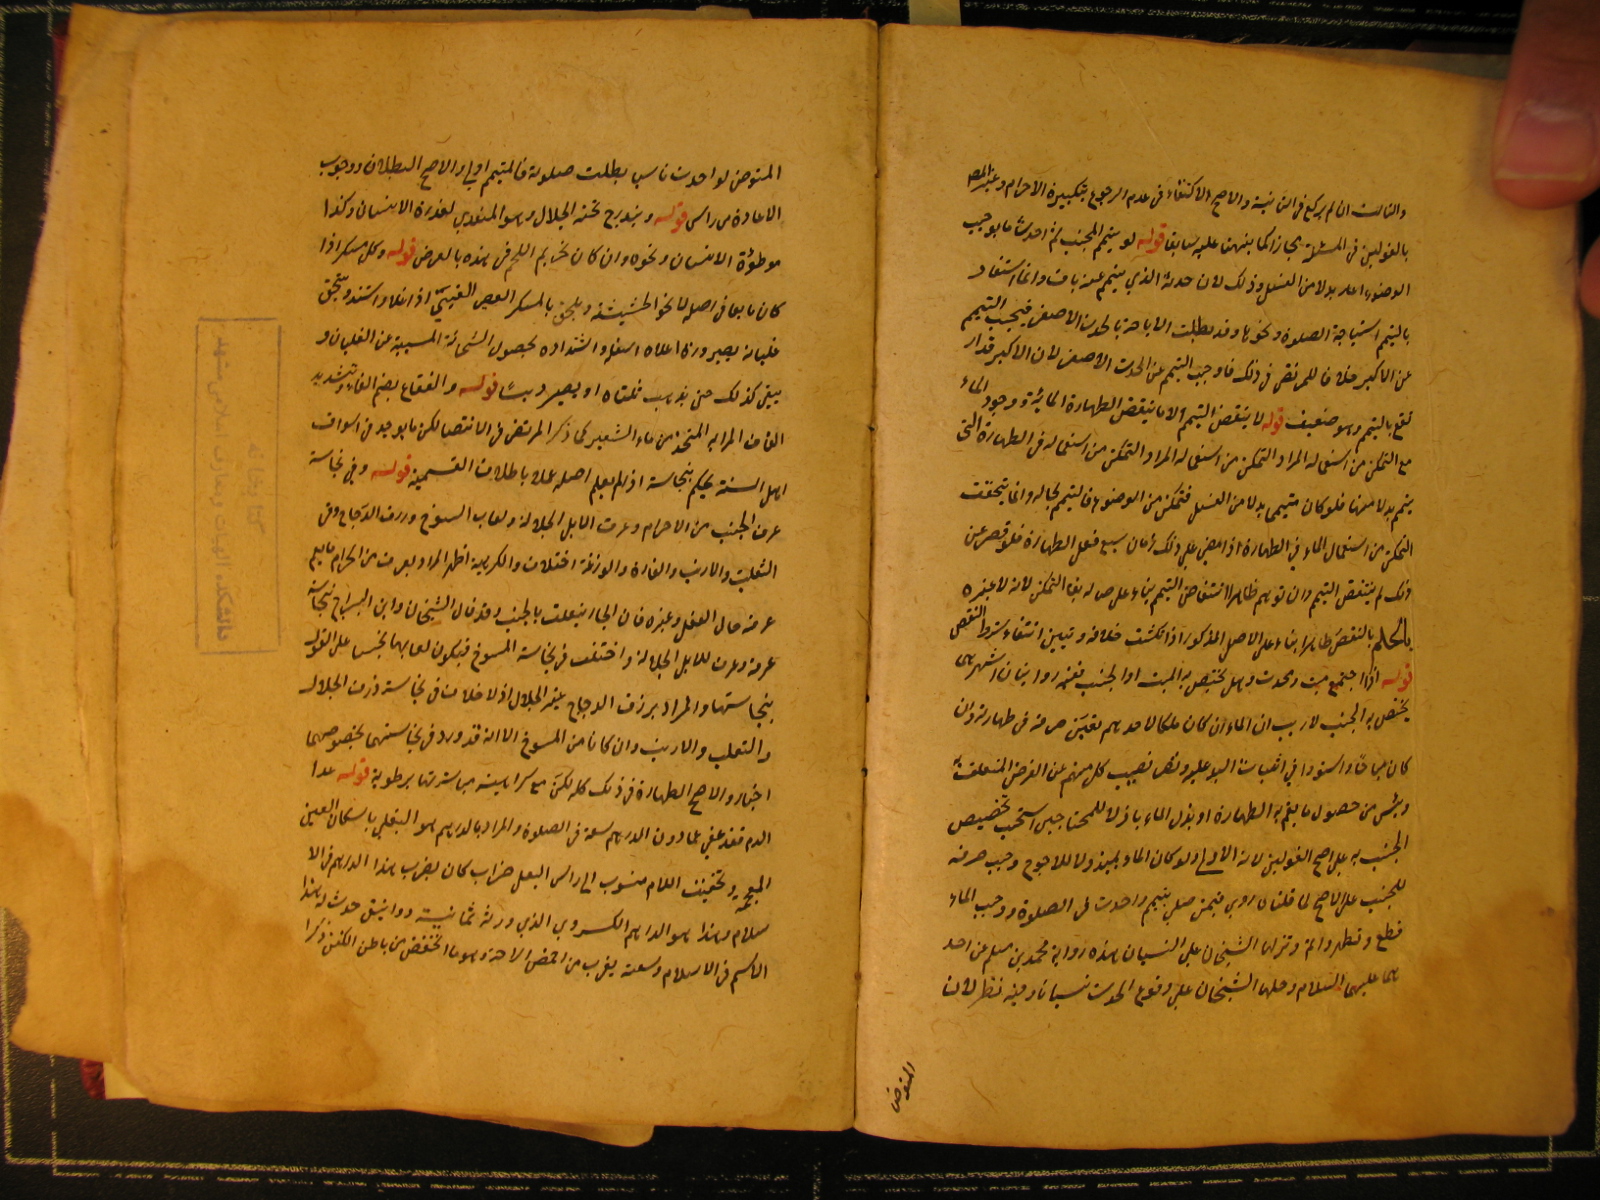 والثالث ان لم يركع في الثانية والاصح الاكتفاء في عدم الرجوع بتكبيرة الاحرام وعبر المصر
بالقولين في المسئلة مجازا كما نبهت عليه سابقا قوله لو تيمم المجنب ثم احدث ما يوجب
الوضوء اعاد بدلا من الغسل وذلك لان حدثه الذي تيمم عنه باق وانما استفاد
بالتيمم استباحة الصلوة ونحوها وقد بطلت الاباحة بالحدث الاصغر فيجب التيمم
عن الاكبر خلافا للمرتضى في ذلك فاوجب التيمم عن الحدث الاصغر لان الاكبر قد ار
تفع بالتيمم وهو ضعيف قوله لا ينقض التيمم الا ما ينقض الطهارة المائية ووجود الماء
مع التمكن من استعماله المراد التمكن من استعماله المراد التمكن من استعماله في الطهارة التي
تيمم بدلا منها فلو كان متيمما بدلا من الغسل فتمكن من الوضوء فالتيمم بحاله وانما يتحقق
التمكن من استعمال الماء في الطهارة اذا مضى على ذلك زمان يسع فعل الطهارة فلو قصر عن
ذلك لم ينتقض التيمم وان توهم ظاهرا انتقاض التيمم بناء على اصالة بقاء التمكن لانه لا عبرة
بالحكم بالنقض ظاهرا بناء على الاصل المذكور اذا انكشف خلافه وتبين انتفاء شرط النقض
قوله اذا اجتمع ميت ومحدث وجنب هل يختص به الميت او الجنب فيه روايتان اشهرهما
يختص به الجنب لا ريب ان الماء ان كان ملكا لاحدهم تعين صرفه في طهارته وان
كان مباحا واستووا في اثبات اليد عليه ونقص نصيب كل منهم عن الغرض المتعلق به
ويئس من حصول ما يتم به الطهارة او بذل الماء باذل للمحتاجين استحب تخصيص
الجنب به على اصح القولين لانه الاولى ولو كان الماء مبذولا للاحوج وجب صرفه
للجنب على الاصح لما قلناه روي فيمن صلى بتيمم واحدث في الصلوة ووجب الماء
قطع وتطهر واتم ونزلها الشيخان على النسيان هذه رواية محمد بن مسلم عن احد
هما عليهما السلام وحملها الشيخان على وقوع الحدث نسيانا وفيه نظر لان
المتوضئ
المتوضئ لو احدث ناسيا بطلت صلوته فالمتيمم اولى والاصح البطلان ووجوب
الاعادة من راس قوله ويندرج تحته الجلال وهو المتغذي بعذرة الانسان وكذا
موطوءة الانسان ونحوه وان كان تحريم اللحم في هذه بالعرض قوله وكل مسكر اذا
كان مايعا في اصله لا نحو الحشيشة ويلحق بالمسكر العصير العنبي اذا غلا واشتد ويتحقق
غليانه بصيرورة اعلاه اسفله واشتداده بحصول الثخانة المسببة عن الغليان و
يبقى كذلك حتى يذهب ثلثاه او يصير دبسا قوله والفقاع بضم الفاء وتشديد
القاف المراد به المتخذ من ماء الشعير كما ذكر المرتضى في الانتصار لكن ما يوجد في اسواق
اهل السنة يحكم بنجاسته اذا لم يعلم اصله عملا باطلاق التسمية قوله وفي نجاسة
عرق الجنب من الحرام وعرق الابل الجلالة ولعاب المسوخ وذرق الدجاج وفي
الثعلب والارنب والفارة والوزغة اختلاف والكراهية اظهر المراد بعرق من الحرام ما يعم
عرقه حال الفعل وغيره فان الجار يتعلق بالجنب وقد قال الشيخان وابن البراج بنجاسة
عرقه وعرق الابل الجلالة واختلف في نجاسة المسوخ فيكون لعابها نجسا على القول
بنجاستها والمراد بزرق الدجاج غير الجلال اذ لا خلاف في نجاسة ذرق الجلال
والثعلب والارنب وان كانا من المسوخ الا انه قد ورد في نجاستهما بخصوصهما
اخبار والاصح الطهارة في ذلك كله لكن مع كراهية مباشرتها برطوبة قوله عدا
الدم فقد عفي عما دون الدرهم سعة في الصلوة والمراد بالدرهم هو البغلي باسكان الغين
المعجمة وتخفيف اللام منسوب الى راس البغل ضراب كان يضرب هذا الدرهم في الا
سلام وهذا هو الدراهم الكسروي الذي وزنه ثمانية دوانيق حدث له هذا
الاسم في الاسلام وسعته يقرب من اخمص الراحة وهو ما انخفض من باطن الكف ذكرا
كتابخانه
دانشکده الهیات و معارف اسلامی مشهد